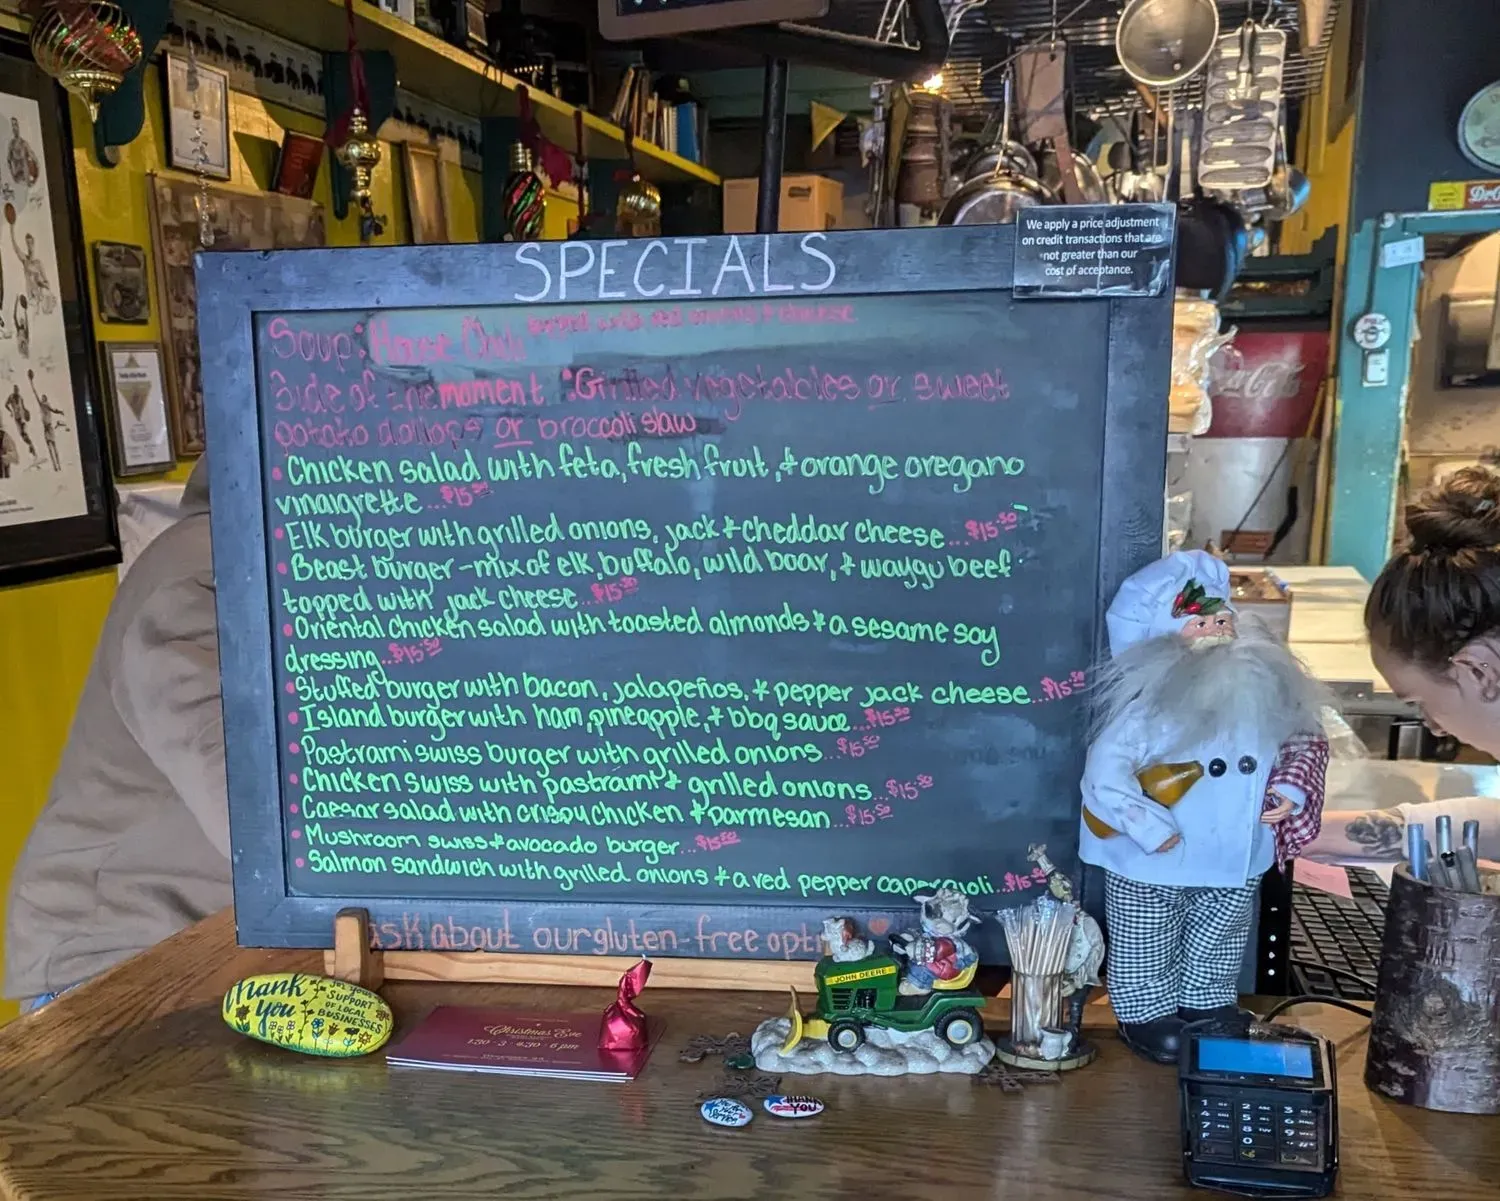 SPECIALS
We apply a price adjustment
on credit transactions that are
not greater than our
cost of acceptance.
Soup: House Chili topped with red onions + cheese
Side of the moment: Grilled vegetables or sweet
potato dollops or broccoli slaw
• Chicken salad with feta, fresh fruit, + orange oregano
vinaigrette...$15.50
• Elk burger with grilled onions, jack + cheddar cheese...$15.50
• Beast burger - mix of elk, buffalo, wild boar, + waygu beef
topped with jack cheese...$15.50
• Oriental chicken salad with toasted almonds + a sesame soy
dressing...$15.50
• Stuffed burger with bacon, jalapeños, + pepper jack cheese...$15.50
• Island burger with ham, pineapple, + bbq sauce...$15.50
• Pastrami swiss burger with grilled onions...$15.50
• Chicken swiss with pastrami + grilled onions...$15.50
• Caesar salad with crispy chicken + parmesan...$15.50
• Mushroom swiss + avocado burger...$15.50
• Salmon sandwich with grilled onions + a red pepper caper aioli...$15.50
ask about our gluten-free opti
Thank
You
for your
SUPPORT
OF LOCAL
BUSINESSES
Christmas Eve
1:30 · 3 · 4:30 · 6 pm
JOHN DEERE
THANK
YOU
Coca-Cola